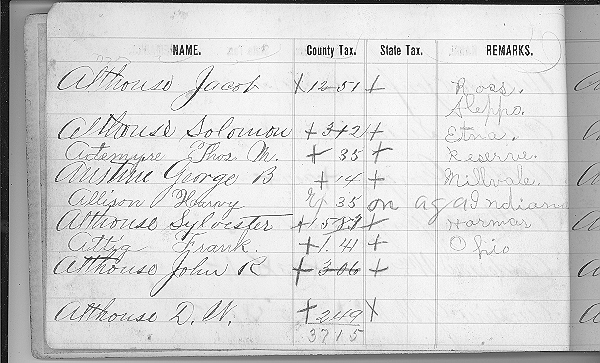 NAME. County Tax. State Tax. REMARKS.
Althouse Jacob + 12 51 + Ross.
Aleppo.
Althouse Solomon + 3 12 + Etna.
Artemyre Thos M. + 35 + Reserve.
George B + 14 + Millvale.
Allison Harvy 35 on ag ad Indiana
Althouse Sylvester + + Harmar
Attig Frank. + 1.41 + Ohio
Althouse John R + 3 06 +
Althouse D. W. + 2 49 +
37 15